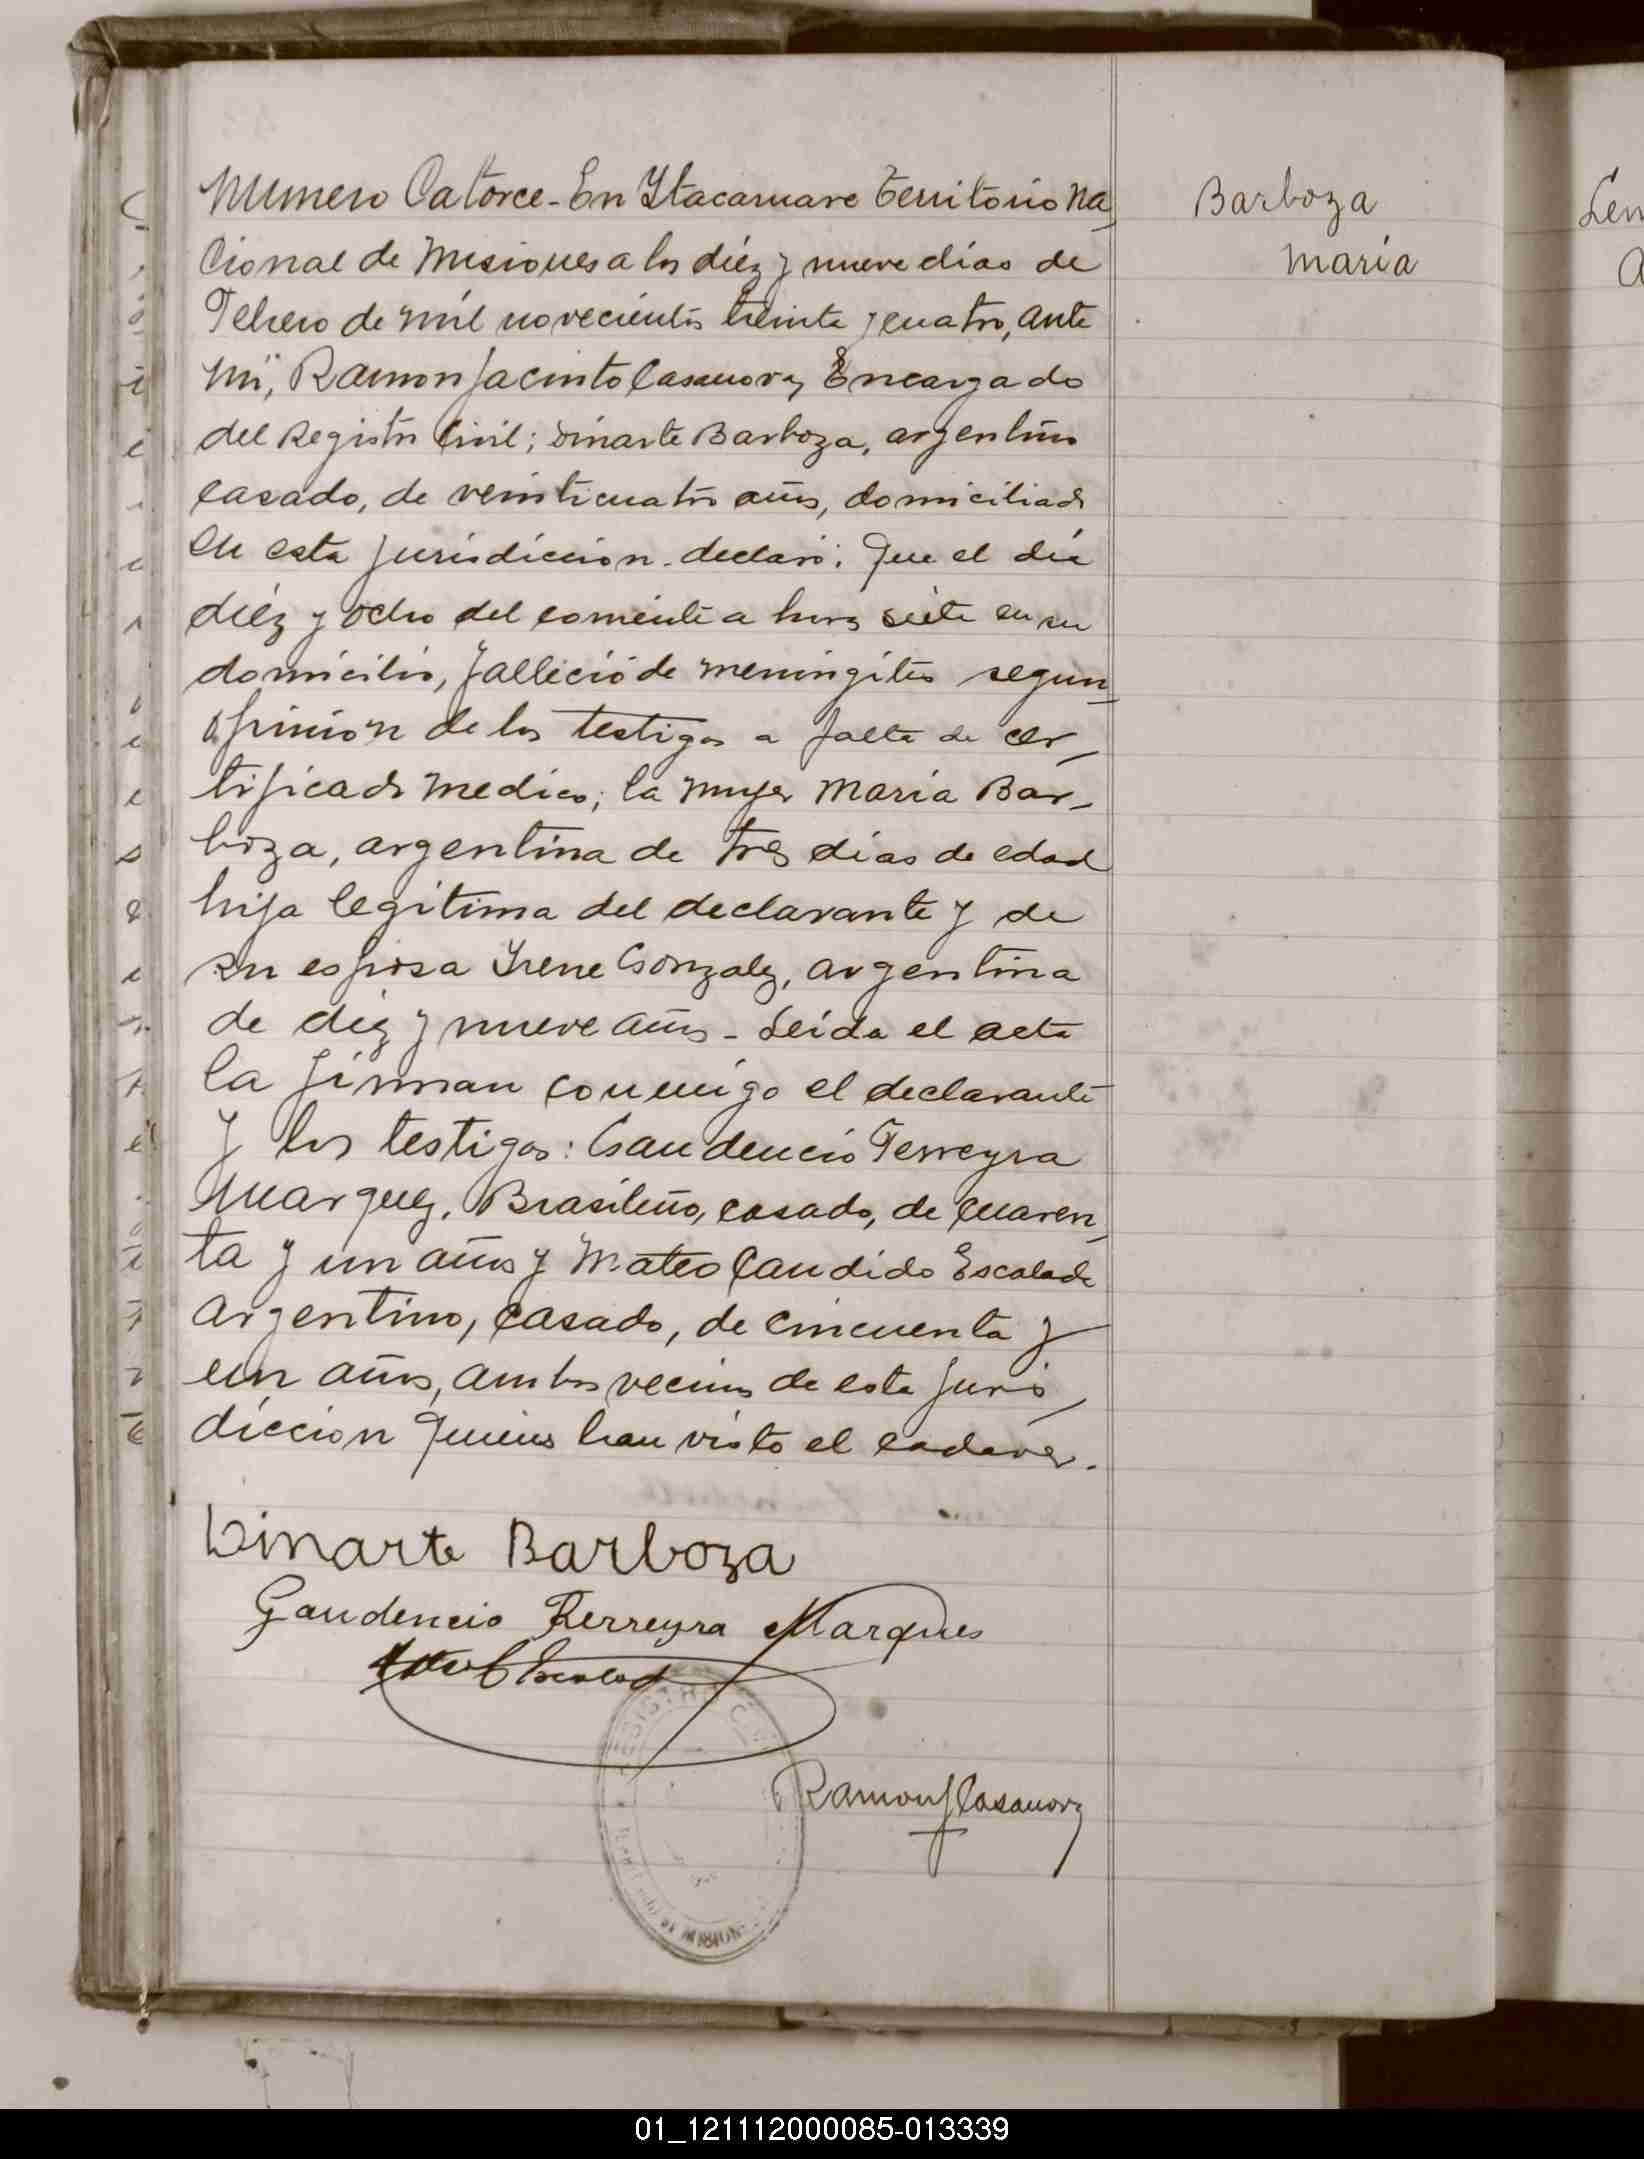 Numero Catorce - En Itacaruare Territorio Na
cional de Misiones a los diéz y nueve dias de
Febrero de mil novecientos treinta y cuatro, ante
mi, Ramon Jacinto Casanova, Encargado
del Registro Civil; Dinarte Barboza, argentino
casado, de veinticuatro años, domiciliado
en esta jurisdiccion. declaró: Que el día
diéz y ocho del corriente a horas siete en su
domicilio, falleció de meningitis segun
opinión de los testigos a falta de cer-
tificado medico; la mujer Maria Bar-
boza, argentina de tres dias de edad
hija legitima del declarante y de
su esposa Irene Gonzalez, argentina
de diez y nueve años - Leida el acta
la firman conmigo el declarante
y los testigos: Gaudencio Ferreyra
Marquez, Brasileño, casado, de cuaren
ta y un años y Mateo Candido Escalada
argentino, casado, de cincuenta y
un años, ambos vecinos de esta juris
diccion quienes han visto el cadaver.
Barboza
Maria
Dinarte Barboza
Gaudencio Ferreyra Marques
Ramon J Casanova
REGISTRO C
MISION
Len
01_121112000085-013339